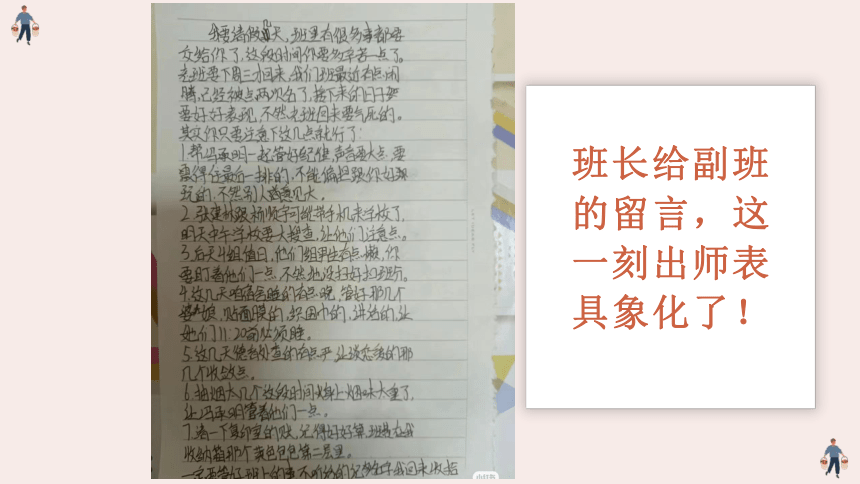 我要请假几天，班里有很多事都要
交给你了，这段时间你要多辛苦一点了。
老班要下周三才回来，我们班最近有点闹
腾，已经被点两次名了，接下来的日子要
要好好表现，不然老班回来要气死的。
其实你只要注意下这几点就行了：
1.帮冯承明一起管好纪律，声音要大点，要
震得住最后一排的，不能偏袒跟你好跟
玩的，不然别人意见大。
2. 张建 跟 顺宇可能带手机来学校了，
明天中午学校要大搜查，让他们注意点。
3.后天4组值日，他们组男生有点懒，你
要盯着他们一点，不然地没扫好扣班分。
4.这几天咱宿舍睡的有点晚，管好那几个
娘，贴面膜的，织围巾的，讲话的，让
她们11:20前必须睡。
5.这几天德育处查的有点严，让谈恋爱的那
几个收敛点。
6.抽烟太几个这段时间身上烟味太重了，
让冯承明管着他们一点。
7.清一下复印室的账，记得好好算，班费在我
收纳箱那个黄色包包第二层里。
一定要管好班上的事，不听的记 等我回来收拾
小红书
班长给副班
的留言，这
一刻出师表
具象化了！